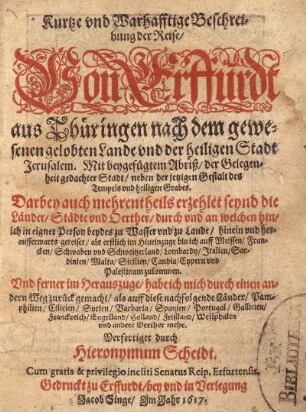 Kurtze vnd Warhafftige Beschrei-
bung der Reise/
Von Erffurdt
aus Thüringen nach dem gewe-
senen gelobten Lande vnd der heiligen Stadt
Jerusalem. Mit beygefügtem Abriß/ der Gelegen-
heit gedachter Stadt/ neben der jetzigen Gestalt des
Tempels vnd heiligen Grabes.
Darbey auch mehrentheils erzehlet seynd die
Länder/ Städte vnd Oerther/ durch vnd an welchen hin/
ich in eigner Person beydes zu Wasser vnd zu Lande/ hinein vnd he-
rausserwarts gereiset/ als erstlich im Hineinzuge bin ich auff Meissen/ Fran-
cken/ Schwaben vnd Schweitzerland/ Lombardy/ Italien/ Sar-
dinien/ Malta/ Sicilien/ Candia/ Cypern vnd
Palestinam zukommen.
Vnd ferner im Herauszuge/ habe ich mich durch einen an-
dern Weg zurück gemacht/ als auff diese nachfolgende Länder/ Pam-
philien/ Cilicien/ Syrien/ Barbaria/ Spanien/ Portugal/ Gallicien/
Franckreich/ Engelland/ Holland/ Frießland/ Westphalen
vnd andere Oerther mehr.
Verfertiget durch
Hieronymum Scheidt.
Cum gratia & privilegio incliti Senatus Reip. Erfurtensis.
Gedruckt zu Erffurdt/ bey vnd in Verlegung
Jacob Singe/ Im Jahr 1617.